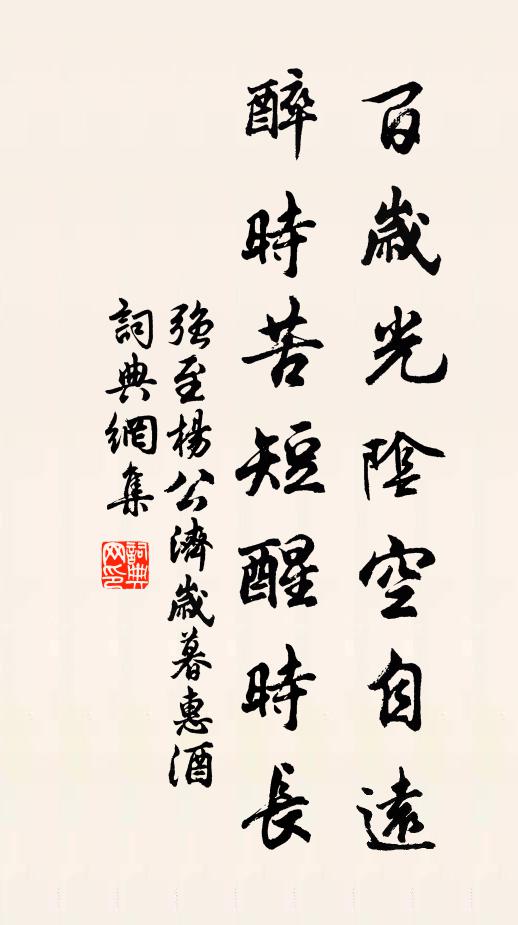 百歲光陰空自遠
醉時苦短醒時長
強至楊公濟歲暮惠酒
詞典網集
詞典网印